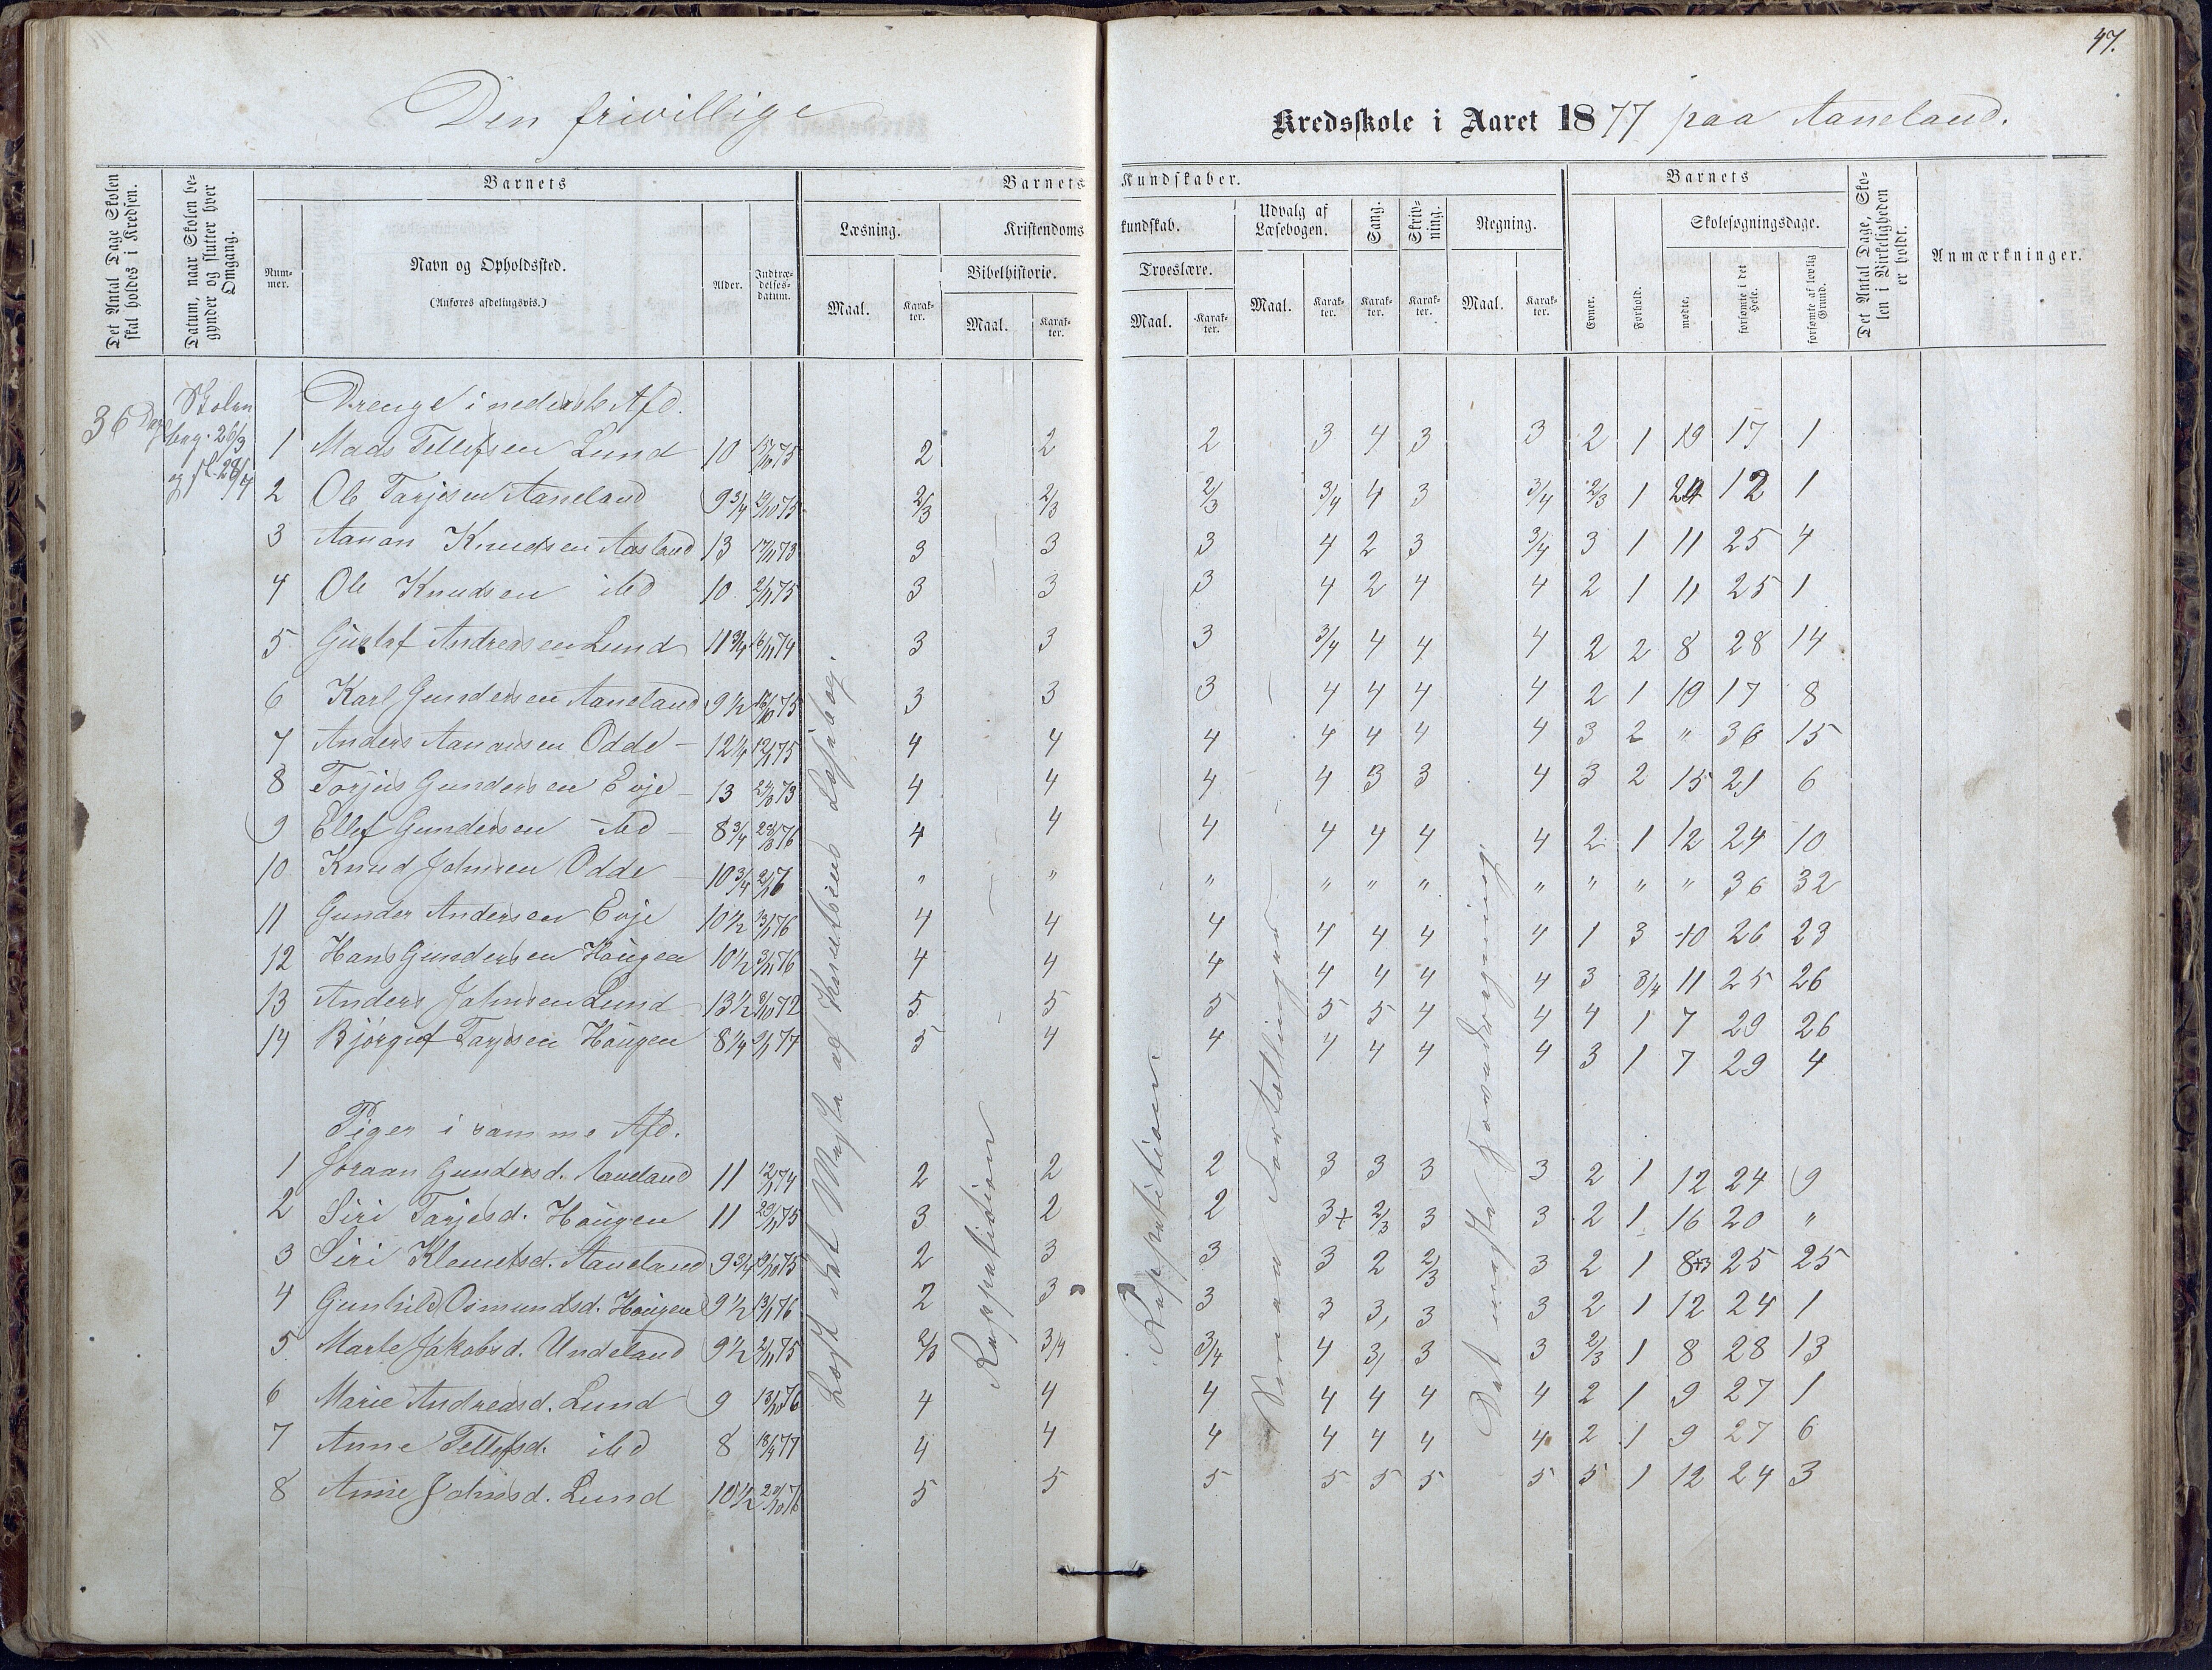 47.
Den frivillige Kredsskole i Aaret 1877 paa Aaneland.
Det Antal Dage Skolen skal holdes i Kredsen.
Datum, naar Skolen begynder og slutter hver Omgang.
Barnets
Nummer.
Navn og Opholdssted.
(Anføres afdelingsvis.)
Alder.
Indtrædelsesdatum.
Barnets Kundskaber.
Læsning.
Maal.
Karakter.
Kristendomskundskab.
Bibelhistorie.
Maal.
Karakter.
Troeslære.
Maal.
Karakter.
Udvalg af Læsebogen.
Maal.
Karakter.
Sang.
Karakter.
Skrivning.
Karakter.
Regning.
Maal.
Karakter.
Barnets
Evner.
Forhold.
Skolesøgningsdage.
mødte.
forsømte i det Hele.
forsømte af lovlig Grund.
Det Antal Dage, Skolen i Virkeligheden er holdt.
Anmærkninger.
36 Dage
Skolen
beg. 26/3
og sl. 28/4
Drenge i nederste Afd.
1 Mads Tellefsen Lund 10 2 2 2 3 4 3 3 2 1 19 17 1
2 Ole Tarjesen Aaneland 9 3/4 2/3 2/3 2/3 3/4 4 3 3/4 2/3 1 24 12 1
3 Aanon Knudsen Aasland 13 17/11 73 3 3 3 4 2 3 3/4 3 1 11 25 4
4 Ole Knudsen ibd 10 2/11 75 3 3 3 4 2 4 4 2 1 11 25 1
5 Gustaf Andreasen Lund 11 3/4 16/11 74 3 3 3 3/4 4 4 4 2 2 8 28 14
6 Karl Gundersen Aaneland 9 1/2 3 3 3 4 4 4 4 2 1 19 17 8
7 Anders Aanonsen Odde 12 1/4 4 4 4 4 4 4 4 3 2 " 36 15
8 Torjus Gundersen Evje 13 4 4 4 4 3 3 4 3 2 15 21 6
9 Ellef Gundersen ibd 8 3/4 4 4 4 4 4 4 4 2 1 12 24 10
10 Knud Johnsen Odde 10 3/4 " " " " " " " " " " 36 32
11 Gunder Andersen Evje 10 1/2 13/11 76 4 4 4 4 4 4 4 1 3 10 26 23
12 Hans Gundersen Haugen 10 1/2 3/11 76 4 4 4 4 4 4 4 3 3/4 11 25 26
13 Anders Johnsen Lund 13 1/2 5 5 5 5 5 4 4 4 1 7 29 26
14 Bjørguf Tarjesen Haugen 8 1/4 5 4 4 4 4 4 4 3 1 7 29 4
Piger i samme Afd.
1 Joraan Gundersd. Aaneland 11 12/11 74 2 2 2 3 3 3 3 2 1 12 24 9
2 Siri Tarjesd. Haugen 11 29/11 75 3 2 2 3+ 2/3 3 3 2 1 16 20 "
3 Siri Klemetsd. Aaneland 9 3/4 2 3 3 3 2 2/3 3 2 1 8+3 25 25
4 Gunhild Osmundsd. Haugen 9 1/2 13/11 76 2 3 3 3 3 3 3 2 1 12 24 1
5 Marte Jakobsd. Undeland 9 1/2 2/11 75 2/3 3/4 3/4 4 3 3 3 2/3 1 8 28 13
6 Marie Andreasd. Lund 9 4 4 4 4 4 4 4 2 1 9 27 1
7 Anne Tellefsd. ibd 8 4 4 4 4 4 4 4 2 1 9 27 6
8 Anne Johnsd. Lund 10 1/2 5 5 5 5 5 5 5 5 1 12 24 3
Læst det Meste af Knutsens Læsebog.
Reppetitioen
Reppetitioen
Det meste Hovedregning